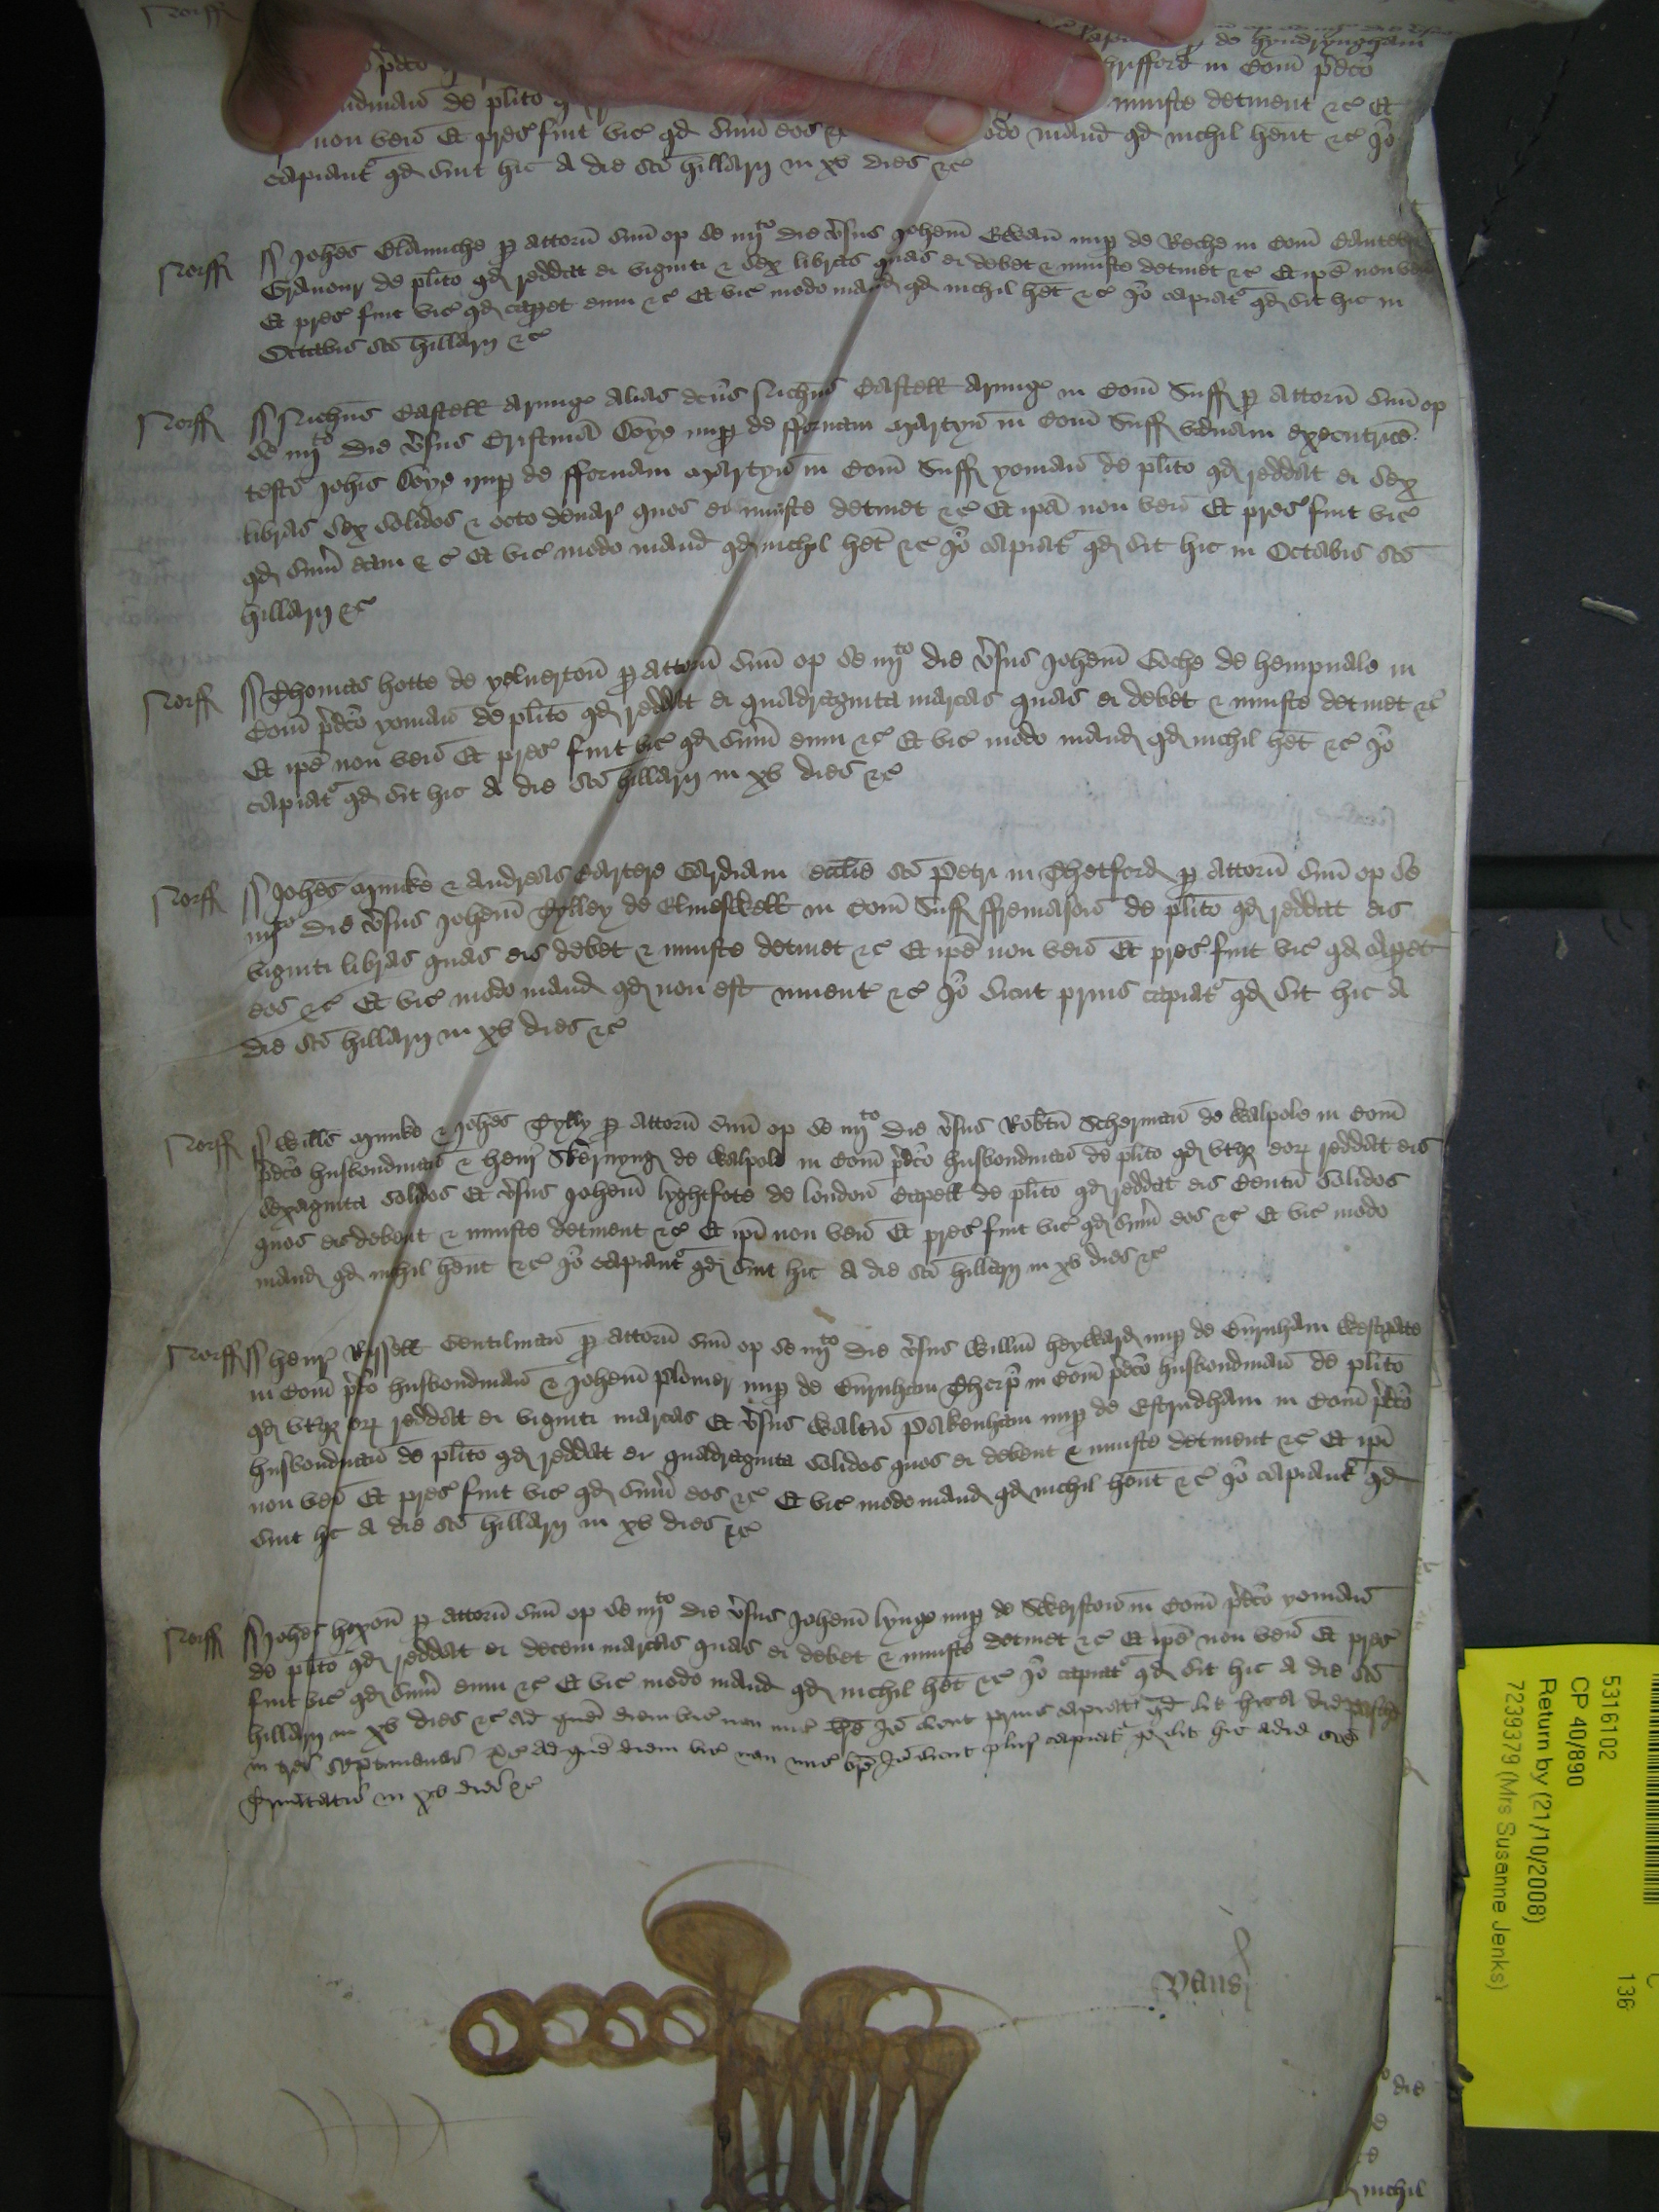 Norff
de hyndryngham
in Com p̄dco
de plito iniuste detinent &c Et
non ven̄ Et prec̄ fuit vic̄ qd sum̄ eos &c modo mand qd nichil hent &c Io
capiant qd sint hic A die sc̄i hillarij in xv dies &c
Norff Johes p attorn̄ suū op se iiijto die v̄sus Johem̄ nup de Reche in Com
de plito qd reddat ei viginti & sex libras quas ei debet & iniuste detinet &c Et ipe non ven̄
Et prec̄ fuit vic̄ qd capet eum &c Et vic̄ modo mand qd nichil het &c Io capiat qd sit hic in
Octabis sc̄i hillarij &c
Norff Nichūs Castell Armig̃ alias dc̄us Nichūs Castell Armig̃ in Com̄ Suff p attorn̄ suū op
se iiijto die v̄sus Cristinā nup de ffornam Martyn̄ in Com̄ Suff viduam executricē
testi Johīs nup de ffornam Martyn̄ in Com̄ Suff yoman̄ de plito qd reddat ei sex
libras sex solidos & octo denar̄ quos ei iniuste detinet &c Et ipā non ven̄ Et prec̄ fuit vic̄
qd sum̄ eam &c Et vic̄ modo mand qd nichil het &c Io capiat qd sit hic in Octabis sc̄i
hillarij &c
Norff Thomas hotte de yelverton̄ p attorn̄ suū op se iiijto die v̄sus Johem̄ Coche de hempnale in
Com̄ p̄dco yoman̄ de plito qd reddat ei quadraginta marcas quas ei debet & iniuste detinet &c
Et ipe non ven̄ Et prec̄ fuit vic̄ qd sum̄ eum &c Et vic̄ modo mand qd nichil het &c Io
capiat qd sit hic A die sc̄i hillarij in xv dies &c
Norff Johes Mynke & Andreas Cartere Gardiani ecclie sc̄i Petri in Thetford p attorn̄ suū op se
iiijto die v̄sus Johem̄ Tylley de Elmeswell in Com̄ Suff ffremason̄ de plito qd reddat eis
viginti libras quas eis debet & iniuste detinet &c Et ipe non ven̄ Et prec̄ fuit vic̄ qd capet
eos &c Et vic̄ modo mand qd non est invent &c Io sicut prius capiat qd sit hic A
die sc̄i hillarij in xv dies &c
Norff Willūs Mynke & Johes Tylly p attorn̄ suū op se iiijto die v̄sus Robtū Scherman̄ de Walpole in Com̄
p̄dco husbondman̄ & henr̄ Skernyng de Walpole in Com̄ p̄dco husbondman̄ de plito qd utq eoȝ reddat eis
sexaginta solidos Et v̄sus Johem̄ lyghtfote de london̄ Capell de plito qd reddat eis Centū solidos
quos eis debent & iniuste detinent &c Et ipi non ven̄ Et prec̄ fuit vic̄ qd sum̄ eos &c Et vic̄ modo
mand qd nichil hent &c Io capiant qd sint hic A die sc̄i hillarij in xv dies &c
Norff henr̄ Russell Gentilman̄ p attorn̄ suū op se iiijto die v̄sus Willm̄ heyward nup de Burnham Westgate
in Com̄ p̄dco husbondman̄ & Johem̄ Palmer nup de Burnham Thorp in Com̄ p̄dco husbondman̄ de plito
qd utq eoȝ reddat ei viginti marcas Et v̄sus Waltū Pakenham nup de Estrudham in Com̄ p̄dco
husbondman̄ de plito qd reddat ei quadraginta solidos quos ei debent & iniuste detinent &c Et ipi
non ven̄ Et prec̄ fuit vic̄ qd sum̄ eos &c Et vic̄ modo mand qd nichil hent &c Io capiant qd
sint hic A die sc̄i hillarij in xv dies &c
Norff Johes hoxon̄ p attorn̄ suū op se iiijto die v̄sus Johem̄ lynge nup de in Com̄ p̄dco yoman̄
de plito qd reddat ei decem marcas quas ei debet & iniuste detinet &c Et ipe non ven̄ Et prec̄
fuit vic̄ qd sum̄ eum &c Et vic̄ modo mand qd nichil het &c Io capiat qd sit hic A die sc̄i
hillarij in xv dies &c Ad quē diem vic̄ non mis̄ br̄e Io sicut prius capiat qd sit hic a die pasche
in tres septimanas &c Ad quē diem vic̄ non mis̄ br̄e Io sicut plur̄ capiat qd sit hic a die sc̄e
Trinitatis in xv dies &c
die
nichil
5316102
CP 40/890
Return by (21/10/2008)
7239379 (Mrs Susanne Jenks)
136